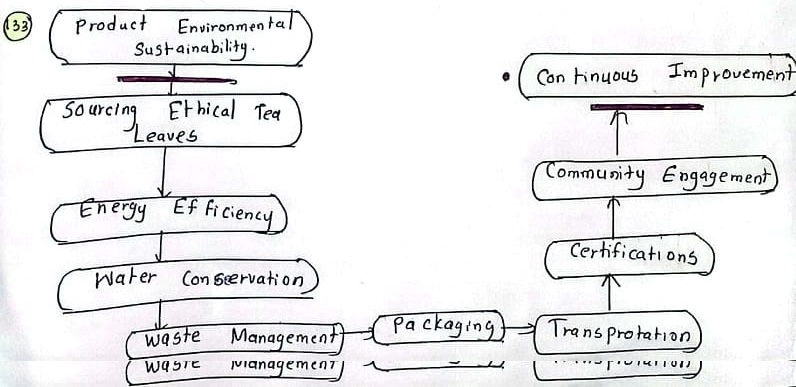 133
Product Environmental
Sustainability.
Sourcing Ethical Tea
Leaves
Energy Efficiency
Water Conservation
Waste Management
Packaging
Transprotation
Certifications
Community Engagement
Continuous Improvement
Waste Management